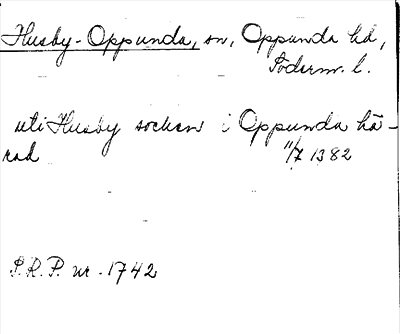 Husby-Oppunda, sn, Oppunda hd,
Söderm. l.
uti Husby socken i Oppunda hä-
rad 11/7 1382
S.R.P. nr. 1742